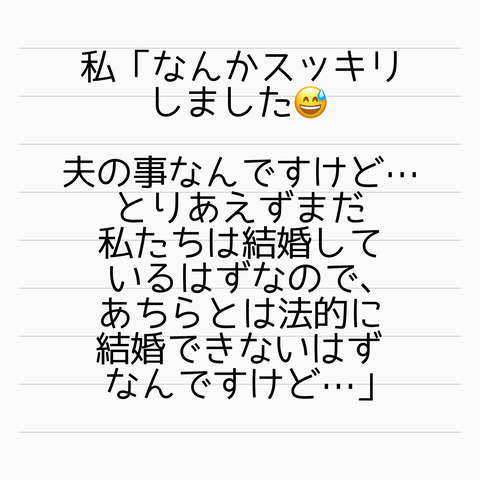 私「なんかスッキリ
しました😅
夫の事なんですけど…
とりあえずまだ
私たちは結婚して
いるはずなので、
あちらとは法的に
結婚できないはず
なんですけど…」